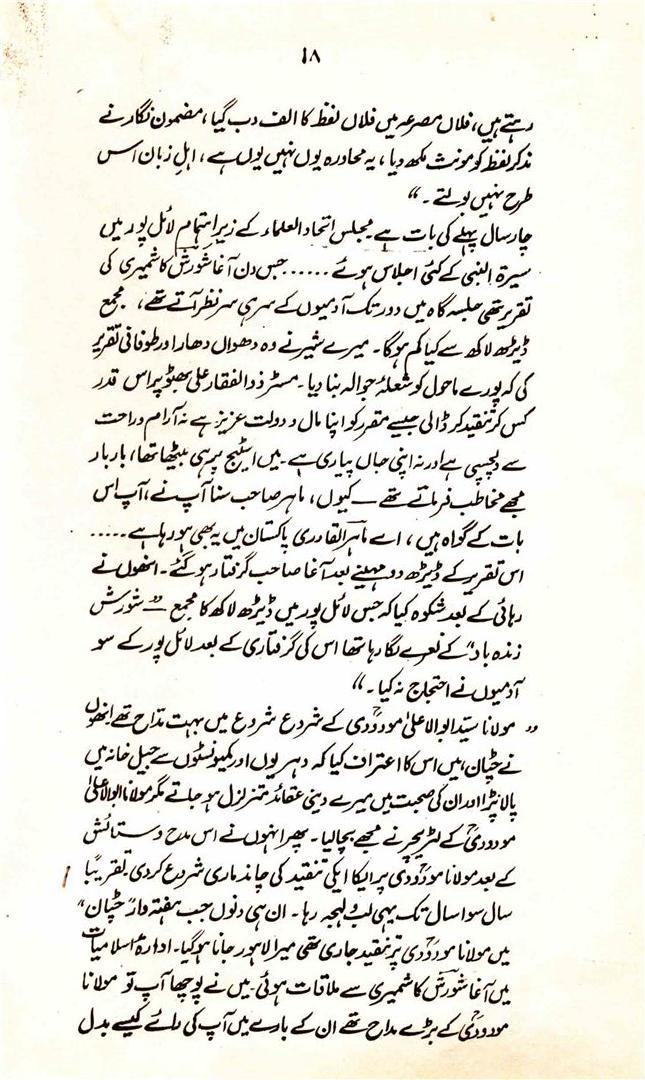 ۱۸
رہتے ہیں، فلاں مصرعہ میں فلاں لفظ کا الف دب گیا، مضمون نگار نے
مذکر لفظ کو مونث لکھ دیا، یہ محاورہ یوں نہیں یوں ہے، اہلِ زبان اس
طرح نہیں بولتے۔“
چار سال پہلے کی بات ہے مجلس اتحاد العلماء کے زیر اہتمام لائل پور میں
سیرۃ النبی کے کئی اجلاس ہوئے ..... جس دن آغا شورش کاشمیری کی
تقریر تھی جلسہ گاہ میں دور تک آدمیوں کے سر ہی سر نظر آتے تھے، مجمع
ڈیڑھ لاکھ سے کیا کم ہوگا۔ میرے شیر نے وہ دھواں دھار اور طوفانی تقریر
کی کہ پورے ماحول کو شعلۂ جوالہ بنا دیا۔ مسٹر ذوالفقار علی بھٹو پر اس قدر
کس کر تنقید کر ڈالی جیسے مقرر کو اپنا مال و دولت عزیز ہے نہ آرام و راحت
سے دلچسپی ہے اور نہ اپنی جاں پیاری ہے۔ میں اسٹیج پر ہی بیٹھا تھا، بار بار
مجھے مخاطب فرماتے تھے — کیوں، ماہر صاحب سنا آپ نے، آپ اس
بات کے گواہ ہیں، اے ماہر القادری پاکستان میں یہ بھی ہو رہا ہے .....
اس تقریر کے ڈیڑھ دو مہینے بعد آغا صاحب گرفتار ہو گئے۔ انھوں نے
رہائی کے بعد شکوہ کیا کہ جس لائل پور میں ڈیڑھ لاکھ کا مجمع — ”شورش
زندہ باد“ کے نعرے لگا رہا تھا اس کی گرفتاری کے بعد لائل پور کے سو
آدمیوں نے احتجاج نہ کیا۔“
”مولانا سید ابوالاعلیٰ مودودیؒ کے شروع شروع میں بہت مداح تھے انھوں
نے چٹان، میں اس کا اعتراف کیا کہ دہریوں اور کمیونسٹوں سے جیل خانہ میں
پالا پڑا اور ان کی صحبت میں میرے دینی عقائد متزلزل ہو جاتے مگر مولانا ابوالاعلیٰ
مودودیؒ کے لٹریچر نے مجھے بچالیا۔ پھر انہوں نے اس مدح و ستائش
کے بعد مولانا مودودیؒ پر ایکا ایکی تنقید کی چاند ماری شروع کر دی۔ تقریباً
سال سوا سال تک یہی لب و لہجہ رہا۔ ان ہی دنوں جب ہفتہ وار ”چٹان“
میں مولانا مودودیؒ پر تنقید جاری تھی میرا لاہور جانا ہو گیا۔ ادارۂ اسلامیات
میں آغا شورش کاشمیری سے ملاقات ہوئی۔ میں نے پوچھا آپ تو مولانا
مودودیؒ کے بڑے مداح تھے ان کے بارے میں آپ کی رائے کیسے بدل